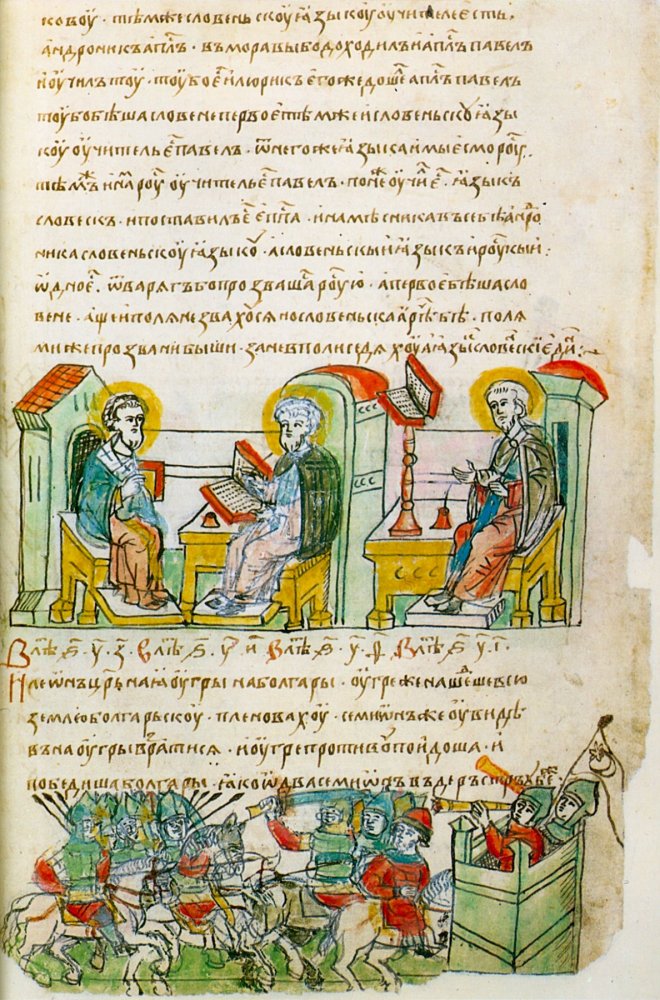 ковоу · тѣмже словеньскоу ꙗзыкоу оучителе есть ·
андроник апⷭ҇лъ · въ моравы бо доходилъ и апⷭ҇лъ павелъ
и оучилъ тоу · тоу бо еⷭ҇ илюрик егоже дошеⷧ҇ апⷭ҇лъ павелъ
тоу бо бѣша словене первое · тѣмже и словеньскоу ꙗзы
коу оучитель еⷭ҇ павелъ · ѿ негоже ꙗзыка и мы есмо роуⷭ҇
тѣмⷤ и наⷨ роуⷭ҇ оучитель еⷭ҇ павелъ · понеⷤ оучиⷧ еⷭ҇ · ꙗзыкъ
словескъ · и поставилъ еⷭ҇ епⷭ҇па · и намѣсника въ себѣ андро
ника словеньскоу ꙗзыкоу · а словеньскыи ꙗзыкъ и роускыи :
ѿдно еⷭ҇ · ѿ варягъ бо прозвашаⷭ҇ роусю · а первое бѣша сло
вене · аще и поляне звахоуся но словеньскаа рѣⷱ бѣ · поля
ми же прозвани быши · зане в поли седяхоу а ꙗзыⷦ словенскi едиⷩ :
В лѣⷮ ҂ѕ · у · з · В лѣⷮ ҂ѕ · у · и В лѣⷮ ҂ѕ · у · ѳ В лѣⷮ ҂ѕ · у · і ·
И леѡнъ црь наꙗ оугры на болгары · оугре же нашеⷣше всю
землю болгарьскоу · пленовахоу · семиѡнъ же оувидѣ
въ на оугры вратися · и оугре противоу поидоша · и
победиша болгары · ꙗко ѡдва семиѡнъ въ деръстръ вбѣже